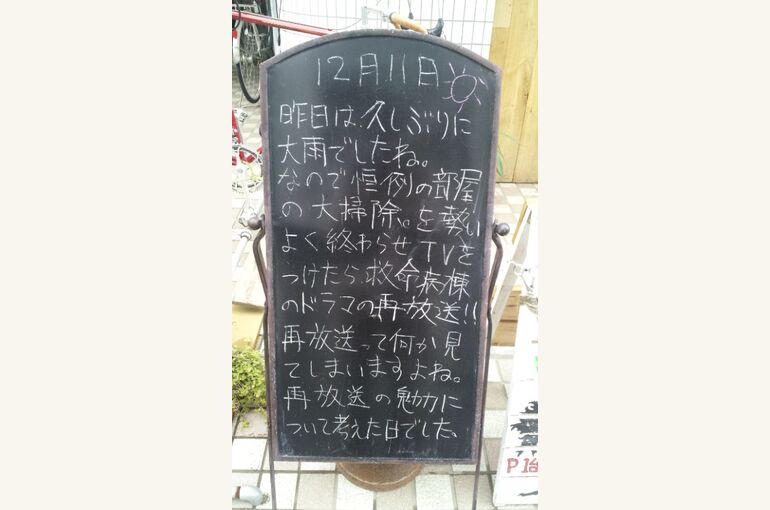 12月11日
昨日は、久しぶりに
大雨でしたね。
なので恒例の部屋
の大掃除。を勢い
よく終わらせTVを
つけたら、救命病棟
のドラマの再放送!!
再放送って何か見
てしまいますよね。
再放送の魅力に
ついて考えた日でした。
P1台